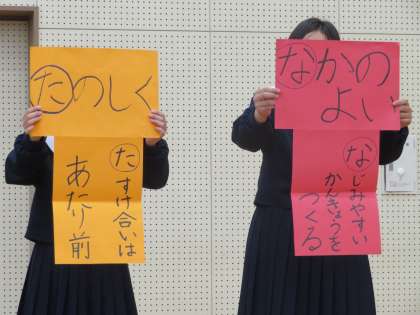 たのしく
たすけ合いは
あたり前
なかの
よい
なじみやすい
かんきょうを
つくる